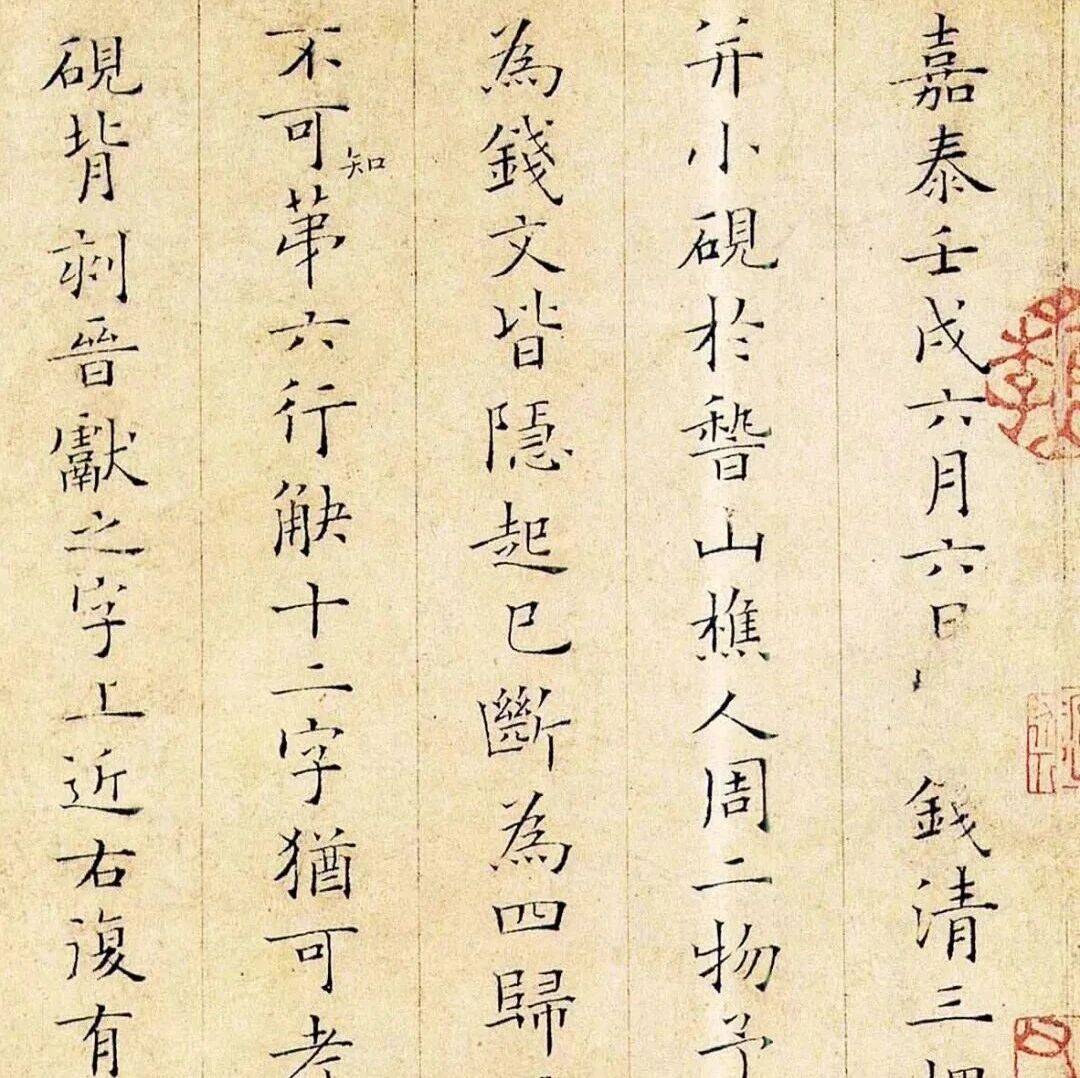 嘉泰壬戌六月六日 錢清三
并小硯於嵇山樵人周二物予
為錢文皆隱起已斷為四歸
不可知第六行缺十二字猶可考
硯背刻晉獻之字上近右復有